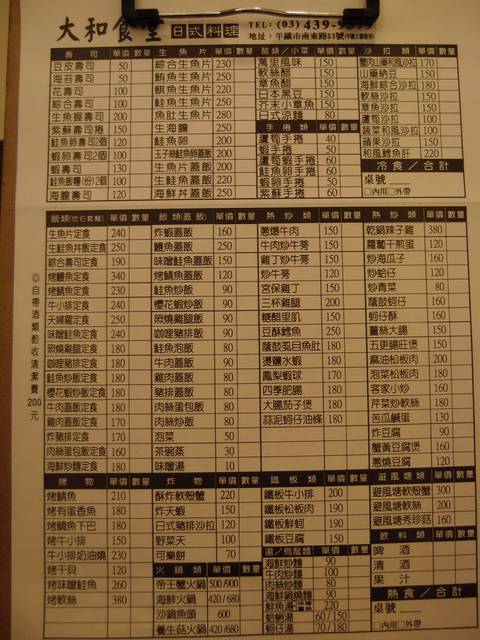 大和食堂 日式料理 TEL: (03) 439-9
地址：平鎮市南東路51號
壽司 單價 數量
豆皮壽司 50
海苔壽司 50
花壽司 100
綜合壽司 100
生魚握壽司 200
紫蘇壽司捲 120
鮭魚卵壽司2個 120
蝦卵壽司2個 100
蝦壽司 130
鮭魚飯糰(份)2個 100
海膽壽司 120
生魚片 單價 數量
綜合生魚片 230
鮪魚生魚片 250
旗魚生魚片 220
鮭魚生魚片 250
魚肚生魚片 280
生海膽 250
鮭魚卵 200
玉子絲鮭魚卵蓋飯 200
生魚片蓋飯 200
生鮭魚蓋飯 220
海鮮丼蓋飯 250
醋類/小菜 單價 數量
萬里風味 150
軟絲醋 150
章魚醋 150
日本黑豆 150
芥末小章魚 150
日式涼麵 80
手捲類 單價 數量
蘆筍手捲 40
蝦手捲 50
蘆筍蝦手捲 60
鮭魚卵手捲 60
蝦卵手捲 50
紫蘇手捲 60
沙拉類 單價 數量
蟹肉山藥和風沙拉 170
山藥納豆 150
海鮮綜合沙拉 180
軟絲沙拉 150
章魚沙拉 150
蘆筍沙拉 100
蔬菜和風沙拉 100
蘋果沙拉 150
和風鱈魚肝 220
冷食／合計
桌號
□內用 □外帶
飯類(定食套餐) 單價 數量
生魚片定食 240
生鮭魚丼飯定食 250
綜合壽司定食 190
烤鰻魚定食 340
烤鯖魚定食 230
牛小排定食 240
天婦羅定食 250
味噌鮭魚定食 280
照燒雞腿定食 180
咖哩豬排定食 180
鮭魚炒飯定食 180
櫻花蝦炒飯定食 180
牛肉蓋飯定食 180
雞肉蓋飯定食 170
炸豬排定食 170
肉絲蛋包飯定食 160
海鮮炒麵定食 180
飯類(蓋飯) 單價 數量
炸蝦蓋飯 160
鰻魚蓋飯 250
味噌鮭魚蓋飯 190
烤鯖魚蓋飯 120
鮭魚炒飯 90
櫻花蝦炒飯 90
照燒雞腿飯 90
咖哩豬排飯 90
鮭魚泡飯 80
牛肉蓋飯 90
雞肉蓋飯 80
豬排蓋飯 80
肉絲蛋包飯 80
肉絲炒飯 80
泡菜 50
茶碗蒸 30
味噌湯 10
熱炒類 單價 數量
蔥爆牛肉 150
牛肉炒牛蒡 150
雞丁炒牛蒡 150
炒牛蒡 120
宮保雞丁 150
三杯雞腿 200
糖醋里肌 150
豆酥鱈魚 250
蔭鼓虱目魚肚 180
燙鹽水蝦 180
鳳梨蝦球 170
四季肥腸 180
大腸茄子煲 180
蒜泥蚵仔油條 180
熱炒類 單價 數量
乾鍋辣子雞 380
蘿蔔干煎蛋 120
炒海瓜子 160
炒蛤仔 120
炒青菜 80
蔭鼓蚵仔 160
蚵仔酥 160
薑絲大腸 150
五更腸旺煲 150
麻油松板肉 200
泡菜松板肉 180
客家小炒 160
芹菜炒軟絲 180
苦瓜鹹蛋 130
炸豆腐 90
蟹黃豆腐煲 160
蔥燒豆腐 120
◎自帶酒類酌收清潔費200元
烤物 單價 數量
烤鯖魚 210
烤有蛋香魚 180
烤鯛魚下巴 180
烤牛小排 150
牛小排奶油燒 230
烤干貝 120
烤味噌鮭魚 260
烤軟絲 380
炸物 單價 數量
酥炸軟殼蟹 220
炸天蝦 150
日式豬排沙拉 120
野菜天 100
可樂餅 70
火鍋類 單價 數量
帝王蟹火鍋 500/900
海鮮火鍋 420/680
沙鍋魚頭 600
養生菇火鍋 420/680
鐵板類 單價 數量
鐵板牛小排 200
鐵板松板肉 190
鐵板鮮蚵 190
鐵板豆腐 150
湯/烏龍麵 單價 數量
海鮮炒麵 90
牛肉炒麵 100
肉絲炒麵 80
海鮮鍋燒麵 90
鮮魚湯 220
蛤蜊湯 60/150
蚵仔湯 70/180
避風塘類 單價 數量
避風塘軟殼蟹 300
避風塘軟絲 200
避風塘秀珍菇 160
飲料類 單價 數量
啤酒
清酒
果汁
熱食／合計
桌號
□內用 □外帶